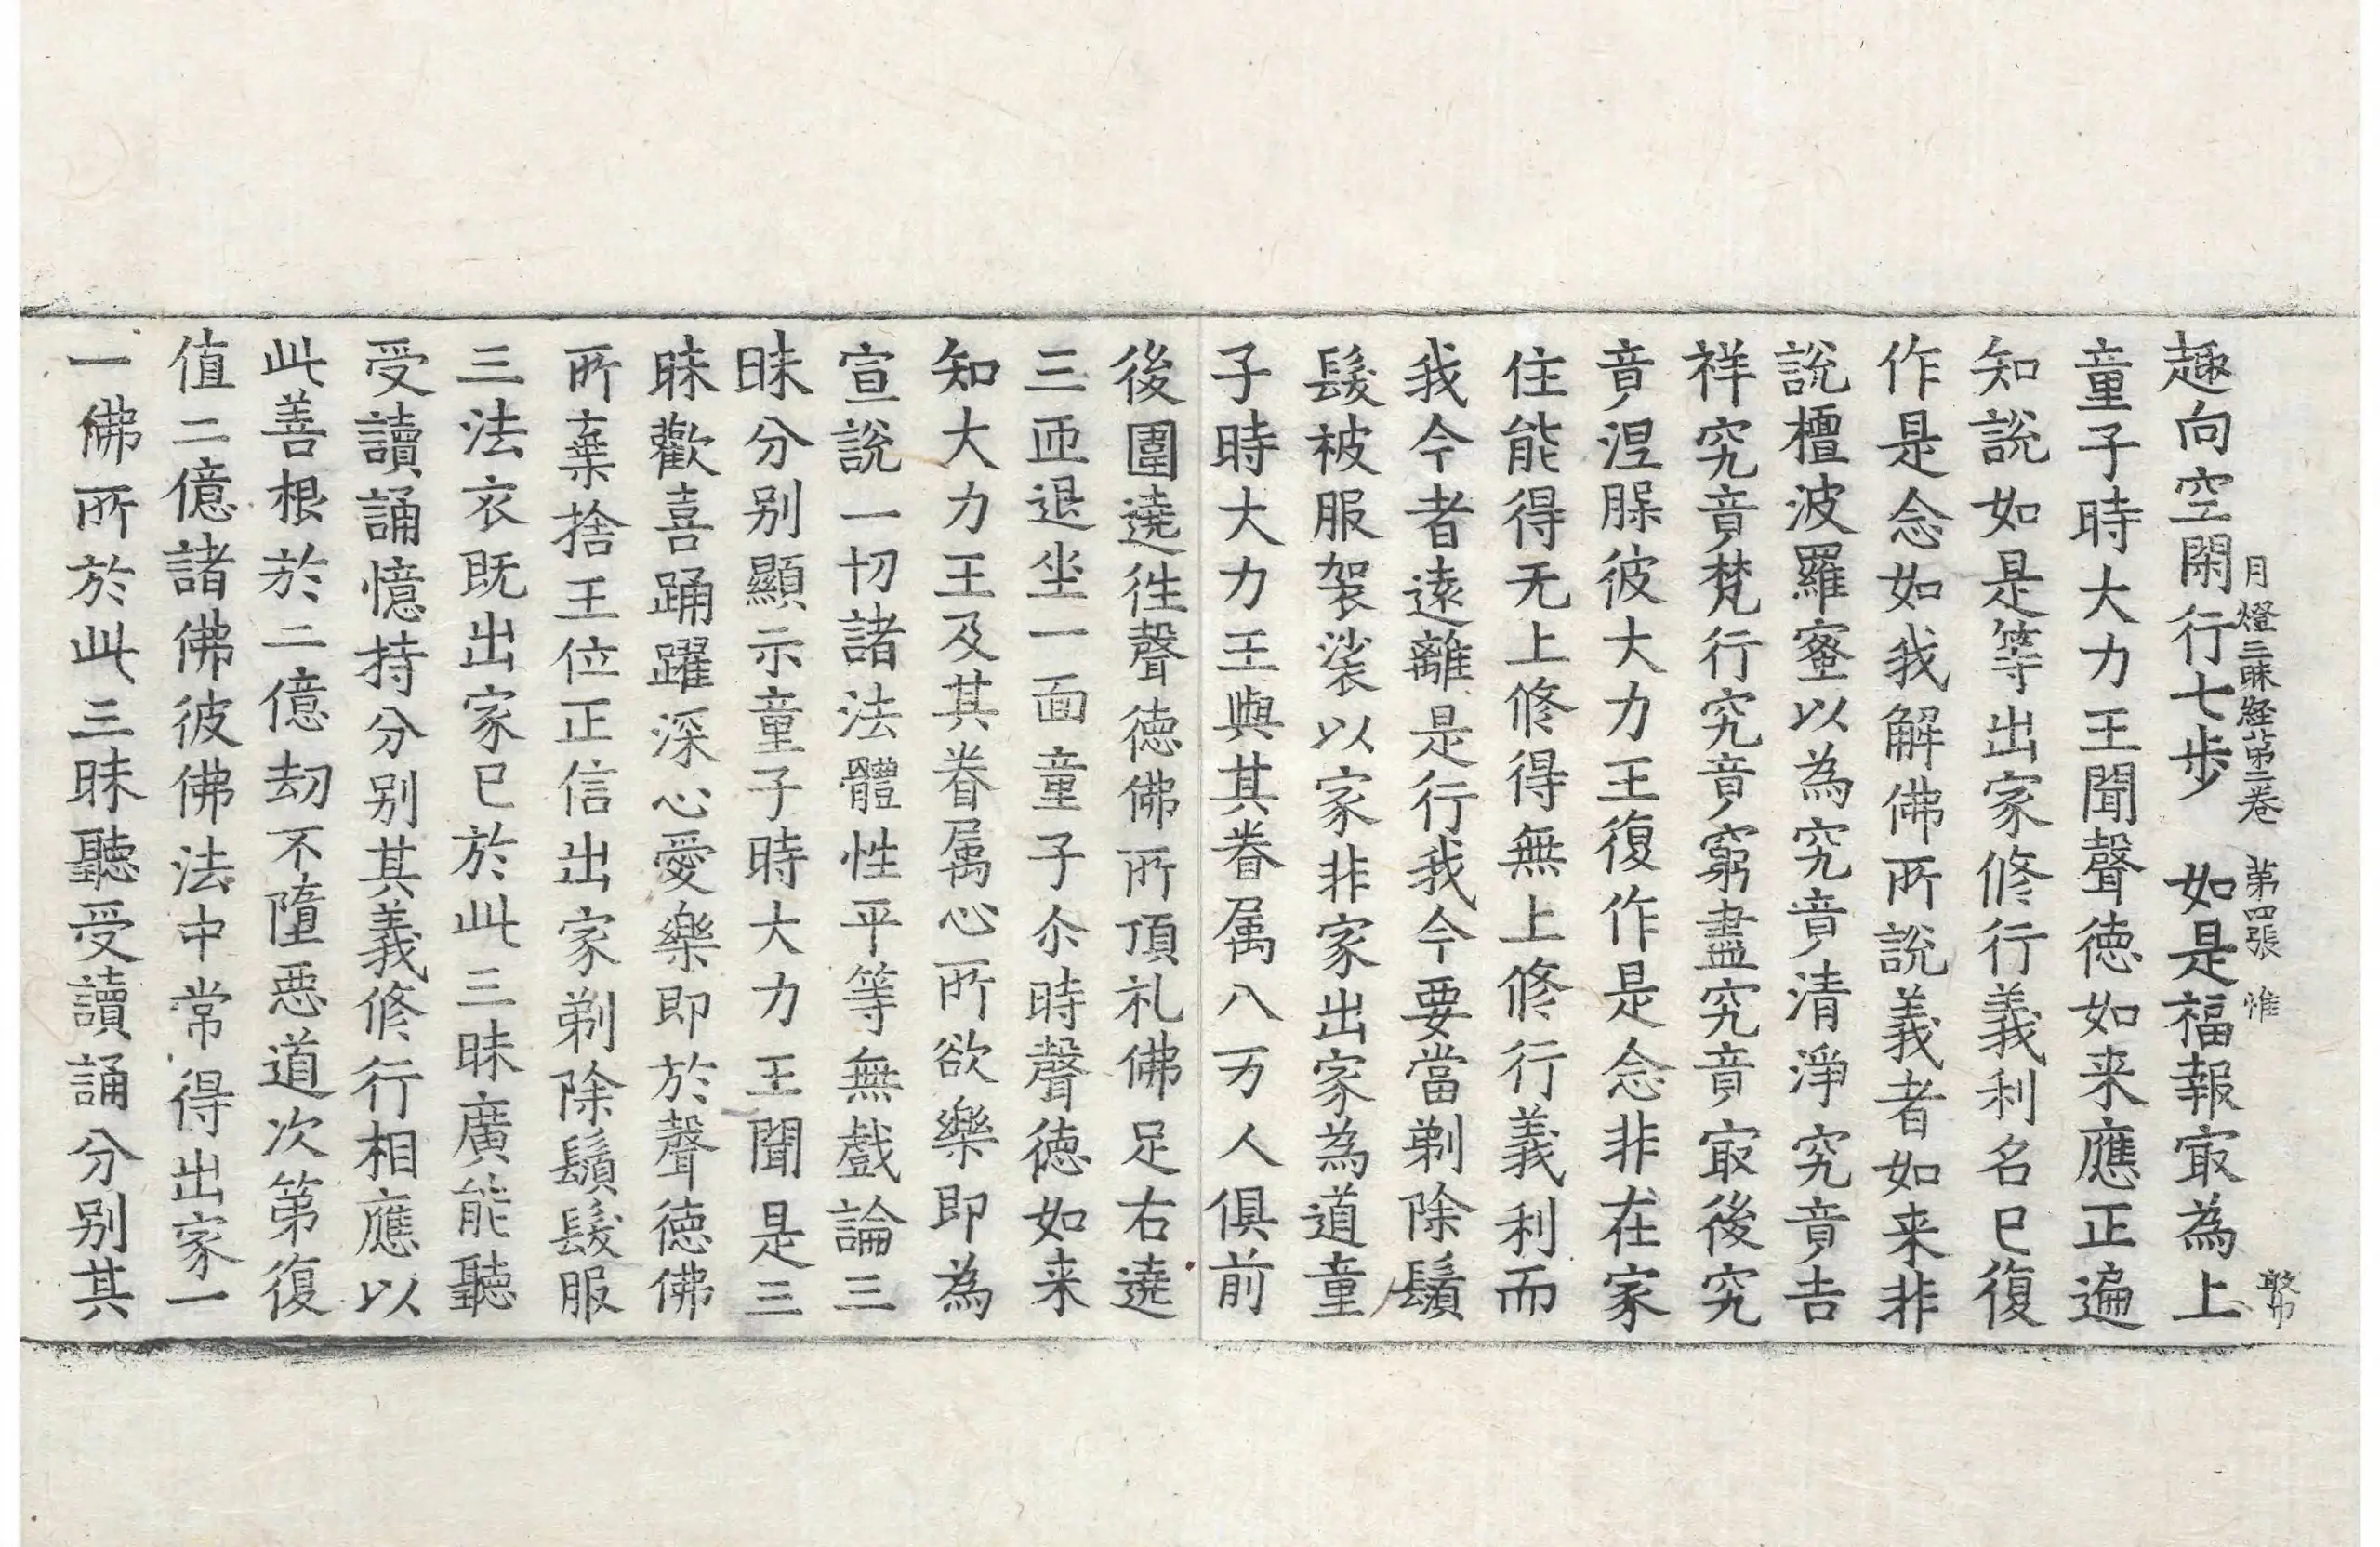 月燈三昧經第二卷　第四張　惟
趣向空閑行七步　如是福報㝡為上
童子時大力王聞聲德如来應正遍
知說如是等出家修行義利名已復
作是念如我解佛所說義者如来非
說檀波羅蜜以為究竟清淨究竟吉
祥究竟梵行究竟窮盡究竟㝡後究
竟涅槃彼大力王復作是念非在家
住能得无上修得無上修行義利而
我今者遠離是行我今要當剃除鬚
髮被服袈裟以家非家出家為道童
子時大力王與其眷属八万人俱前
後圍遶徃聲德佛所頂礼佛足右遶
三匝退坐一面童子尒時聲德如来
知大力王及其眷属心所欲樂即為
宣說一切諸法體性平等無戲論三
昧分別顯示童子時大力王聞是三
昧歡喜踊躍深心愛樂即於聲德佛
所棄捨王位正信出家剃除鬚髮服
三法衣既出家已於此三昧廣能聽
受讀誦憶持分別其義修行相應以
此善根於二億劫不墮惡道次第復
值二億諸佛彼佛法中常得出家一
一佛所於此三昧聽受讀誦分別其